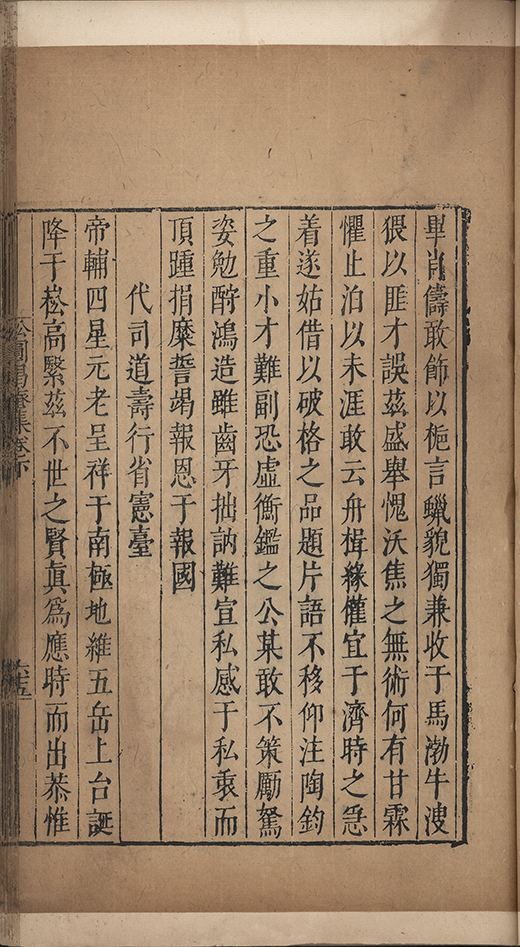 畢肖儔敢飾以梔言蠟貌獨兼收于馬渤牛溲
猥以匪才誤茲盛舉愧沃焦之無術何有甘霖
懼止泊以未涯敢云舟楫緣催宜于濟時之急
着遂姑借以破格之品題片語不移仰注陶鈞
之重小才難副恐虛衡鑑之公某敢不策勵駑
姿勉酧鴻造雖齒牙拙訥難宣私感于私衷而
頂踵捐糜誓竭報恩于報國
代司道壽行省憲臺
帝輔四星元老呈祥于南極地維五岳上台誕
降于崧高繄茲不世之賢眞爲應時而出恭惟